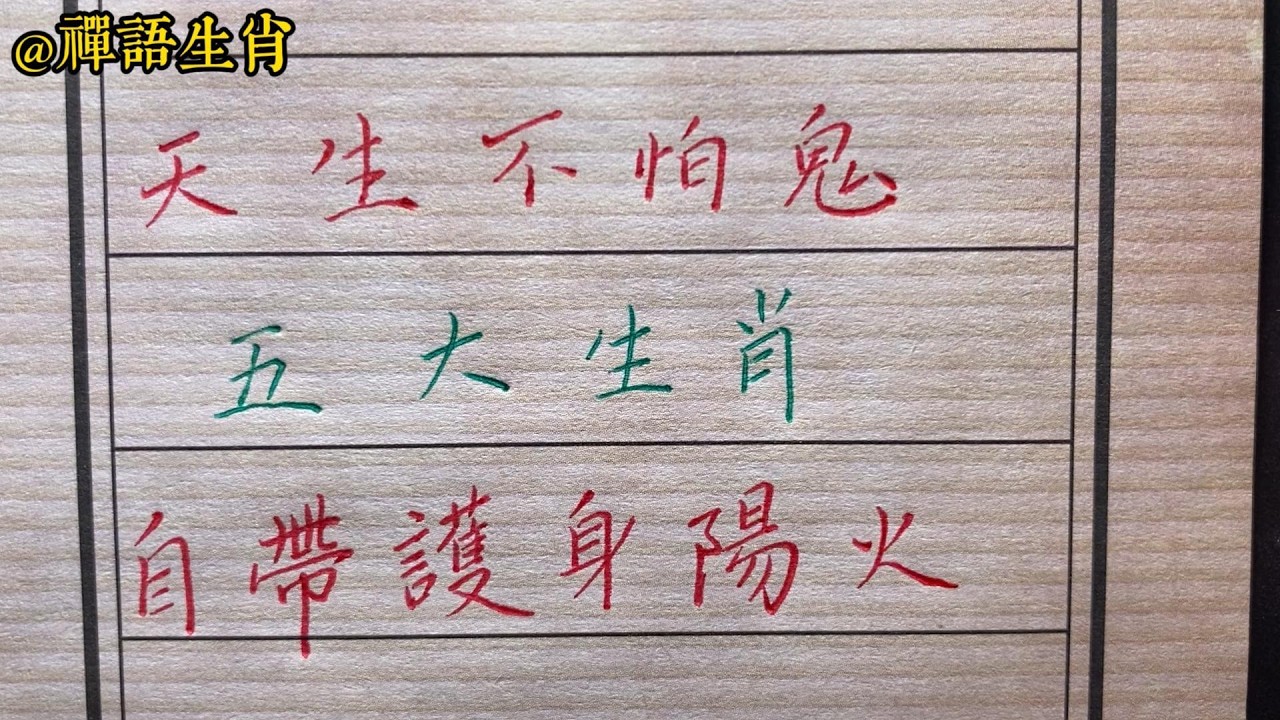 @禪語生肖
天生不怕鬼
五大生肖
自帶護身陽火